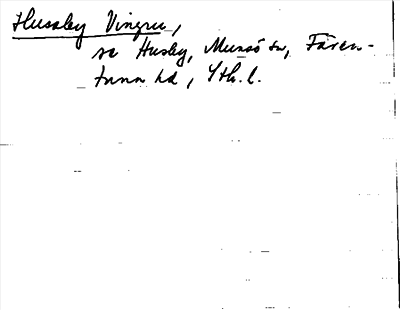 Husaby Vingru,
se Husby, Munsö sn, Fären-
tuna hd, Sth. l.